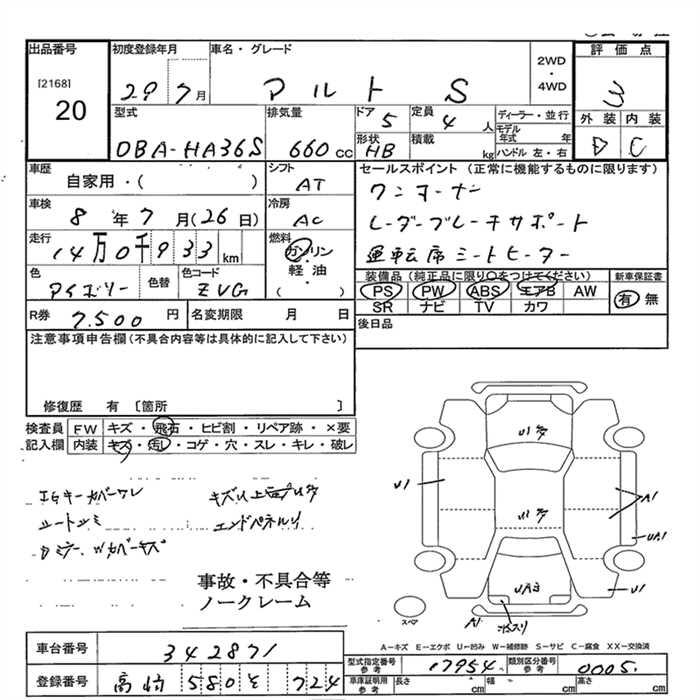 出品番号
[2168]
20
初度登録年月
29 7月
車名・グレード
アルト S
2WD
・
4WD
評価点
3
外装 内装
D C
型式
DBA-HA36S
排気量
660 cc
ドア 5
形状 HB
定員 4 人
積載 kg
ディーラー・並行
モデル年式 年
ハンドル 左・右
車歴
自家用・( )
シフト
AT
車検
8年7月(26日)
冷房
AC
走行
14万0千933km
燃料
ガソリン
・
軽油
( )
色
アイボリー
色替
色コード
ZVG
R券
7.500円
名変期限 月 日
セールスポイント (正常に機能するものに限ります)
ワンオーナー
レーダーブレーキサポート
運転席シートヒーター
装備品(純正品に限り○をつけてください)
PS PW ABS エアB AW
SR ナビ TV カワ
新車保証書
有 無
後日品
注意事項申告欄(不具合内容等は具体的に記入して下さい)
修復歴 有〔箇所 〕
検査員 FW キズ・飛石・ヒビ割・リペア跡・×要
記入欄 内装 キズ・汚レ・コゲ・穴・スレ・キレ・破レ
シートシミ
エンドパネル
事故・不具合等
ノークレーム
U1
A1
UA1
U1
UA3
A1
スペア
A-キズ E-エクボ U-凹み W-補修跡 S-サビ C-腐食 XX-交換済
車台番号 342871
登録番号 高崎 580 724
型式指定番号 参考 17954
類別区分番号 参考 0005
車庫証明用 参考 長さ cm 幅 cm 高さ cm